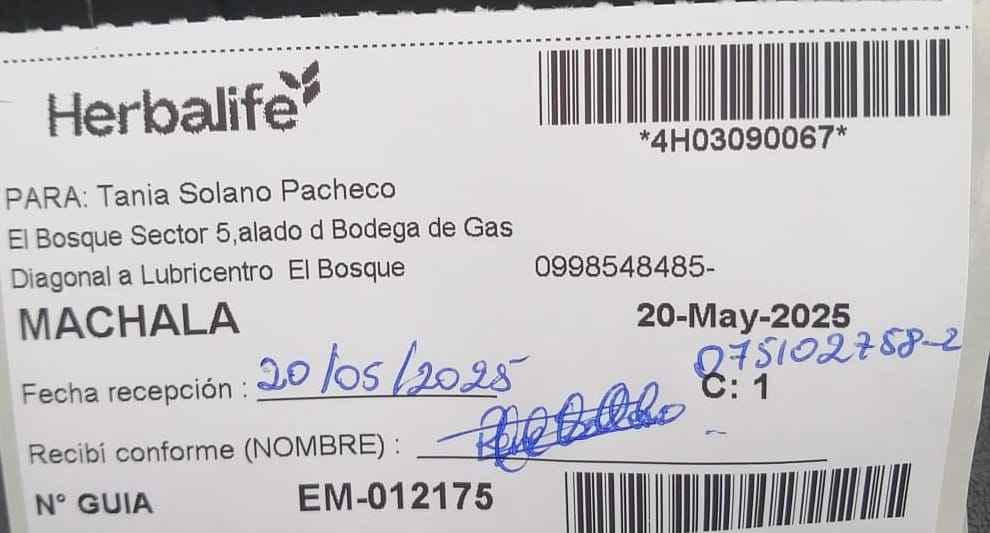 Herbalife
*4H03090067*
PARA: Tania Solano Pacheco
El Bosque Sector 5,alado d Bodega de Gas
Diagonal a Lubricentro El Bosque 0998548485-
MACHALA 20-May-2025
075102758-2
Fecha recepción : 20/05/2025 C: 1
Recibí conforme (NOMBRE) :
N° GUIA EM-012175